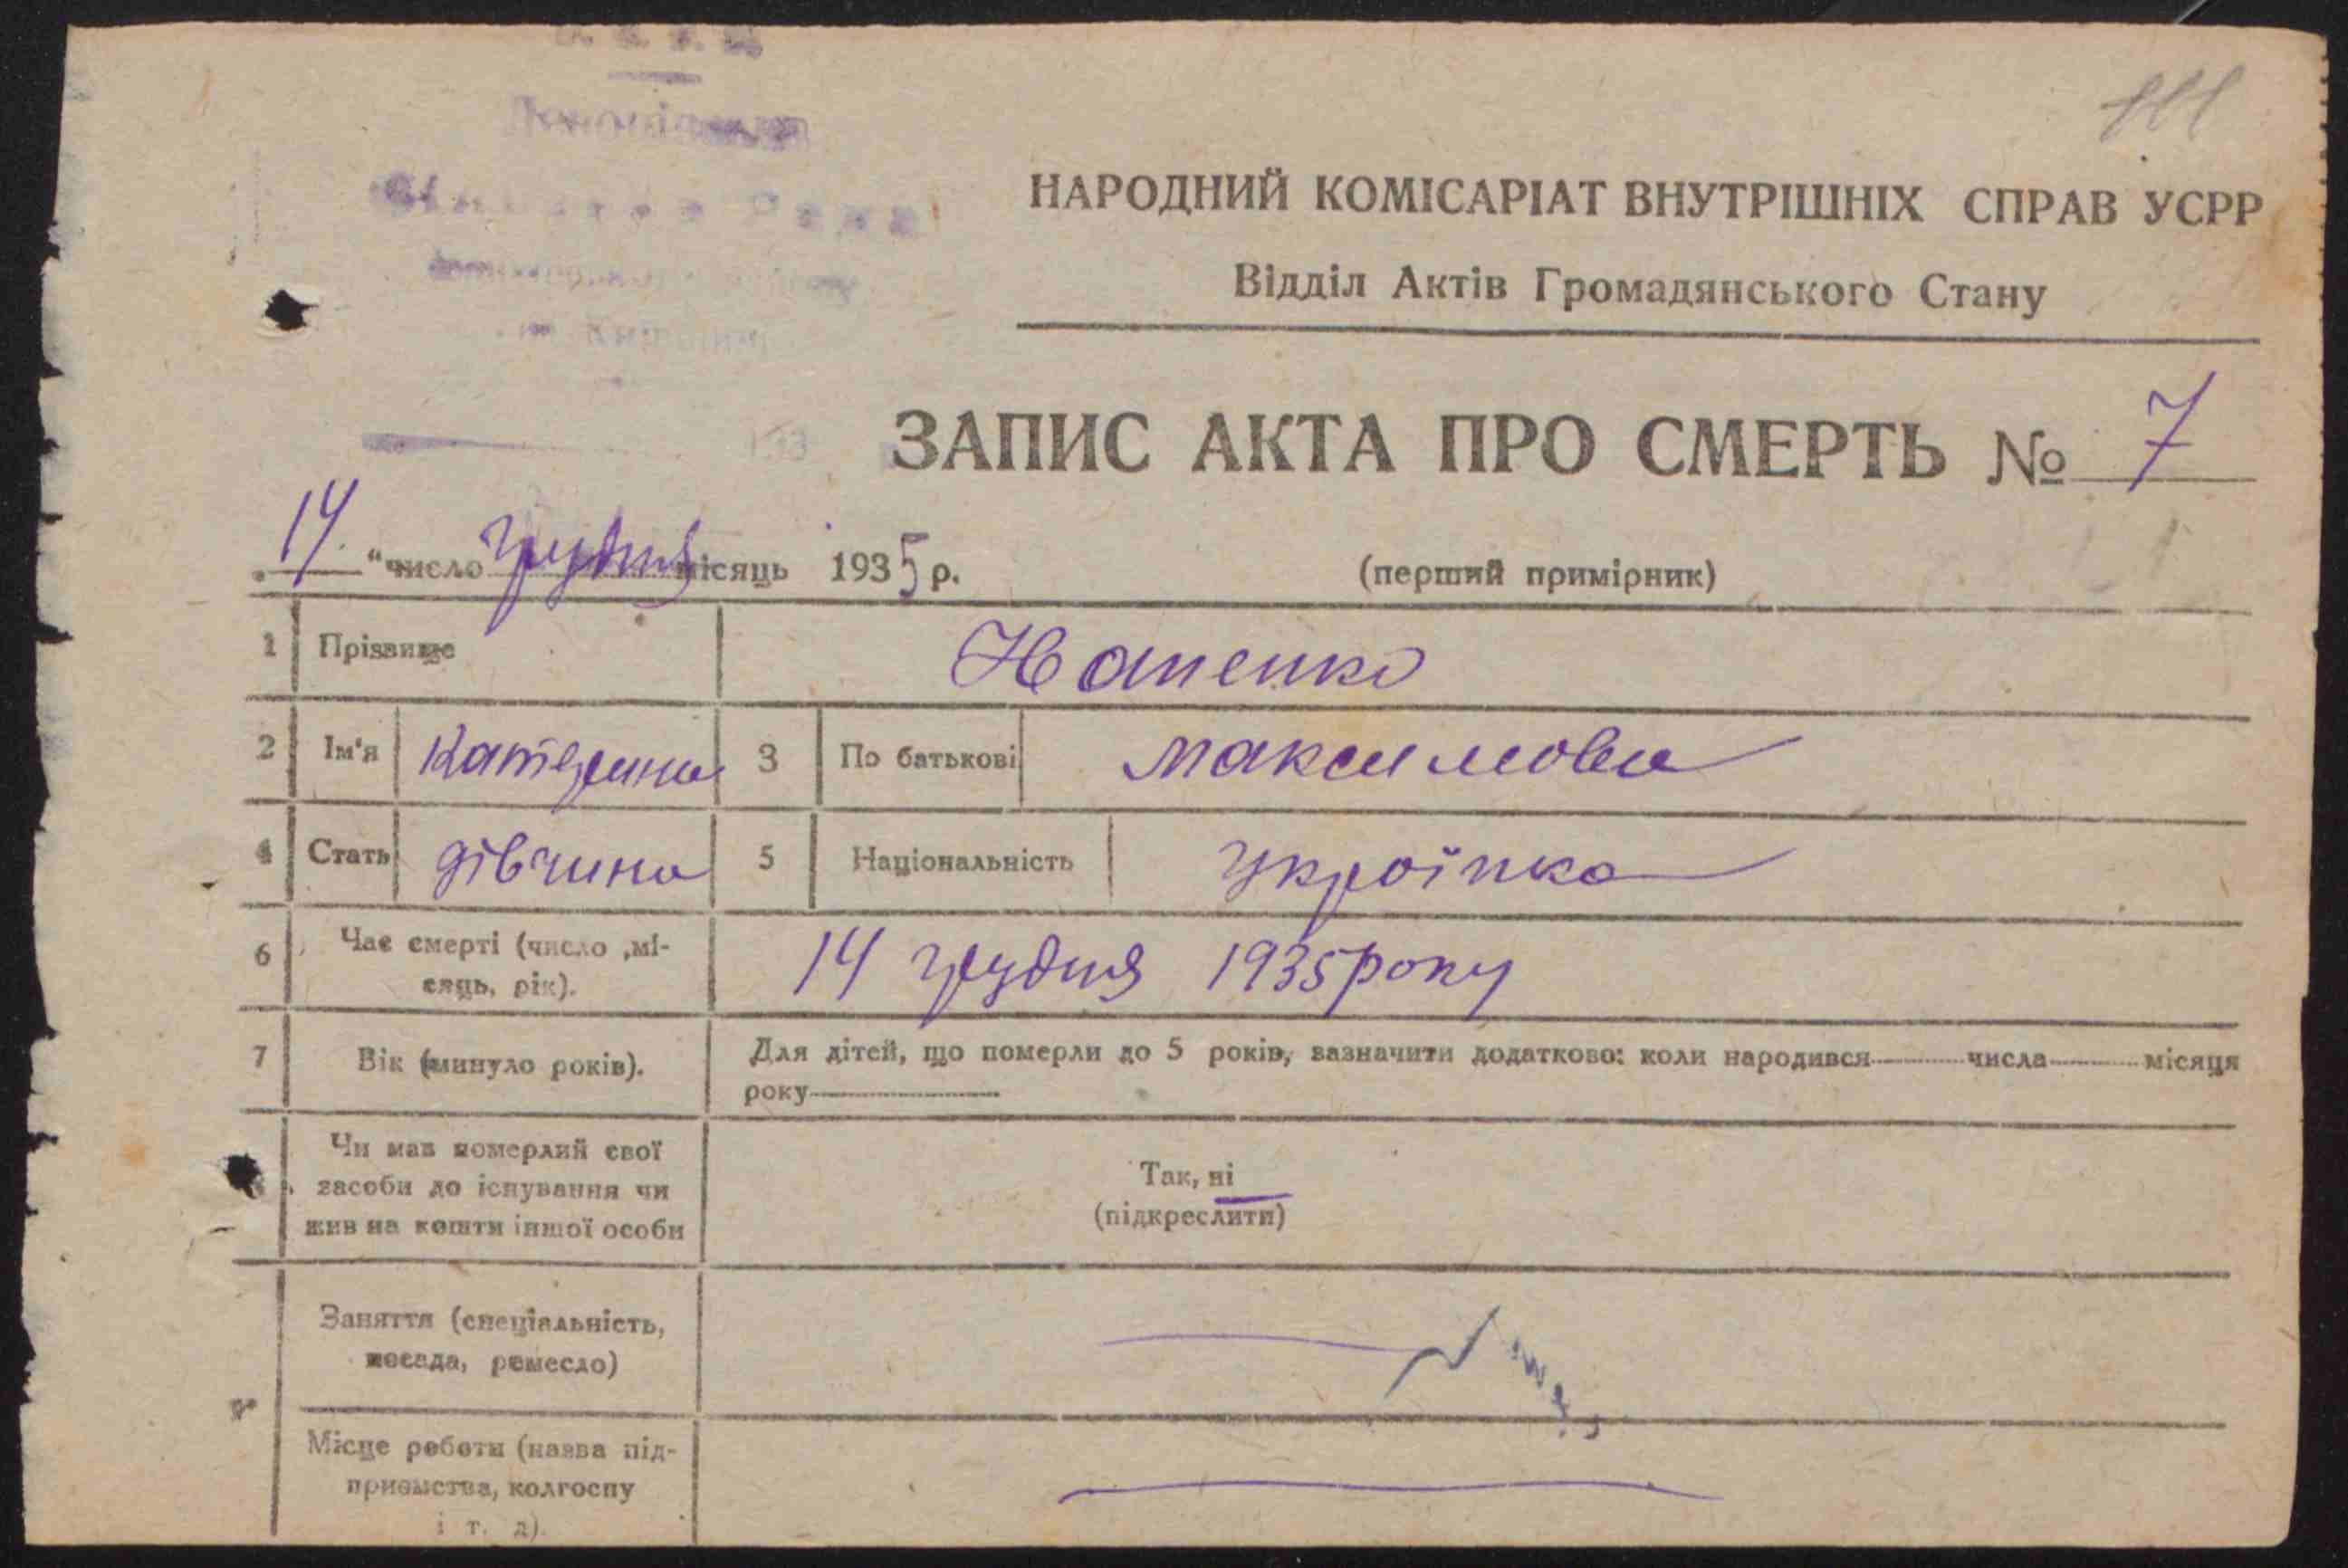 НАРОДНИЙ КОМІСАРІАТ ВНУТРІШНІХ СПРАВ УСРР
Відділ Актів Громадянського Стану
ЗАПИС АКТА ПРО СМЕРТЬ № 7
14 "число грудня місяць 1935 р.
(перший примірник)
1 Прізвище
2 Ім'я Катерина 3 По батькові Максимовна
4 Стать дівчина 5 Національність Українка
6 Час смерті (число ,мі-
сяць, рік).
14 грудня 1935 року
7 Вік (минуло років).
Для дітей, що померли до 5 років, зазначити додатково: коли народився числа місяця
року
Чи мав померлий свої
засоби до існування чи
жив на кошти іншої особи
Так, ні
(підкреслити)
Заняття (спеціальність,
посада, ремесло)
Місце роботи (назва під-
приємства, колгоспу
і т. д).